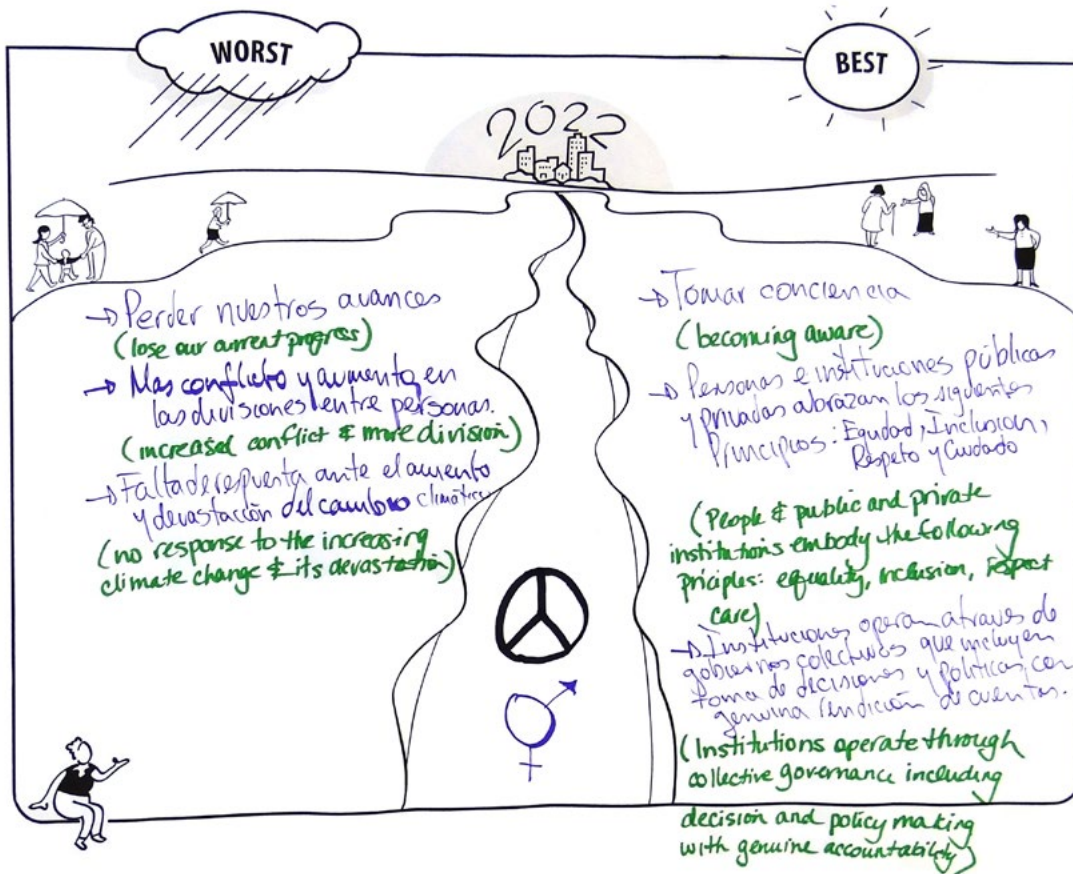 WORST
BEST
2022
→ Perder nuestros avances
(lose our current progress)
→ Mas conflicto y aumento en
las divisiones entre personas.
(increased conflict & more division)
→ Falta de respuenta ante el aumento
y devastación del cambio climático
(no response to the increasing
climate change & its devastation)
→ Tomar conciencia
(becoming aware)
→ Personas e instituciones públicas
y privadas abrazan los siguientes
Principios: Equidad, Inclusion,
Respeto y Cuidado
(People & public and private
institutions embody the following
priciples: equality, inclusion, respect
care)
→ Instituciones operan através de
gobiernos colectivos que incluyen
toma de decisiones y políticas, con
genuina rendición de cuentas.
(Institutions operate through
collective governance including
decision and policy making
with genuine accountability)